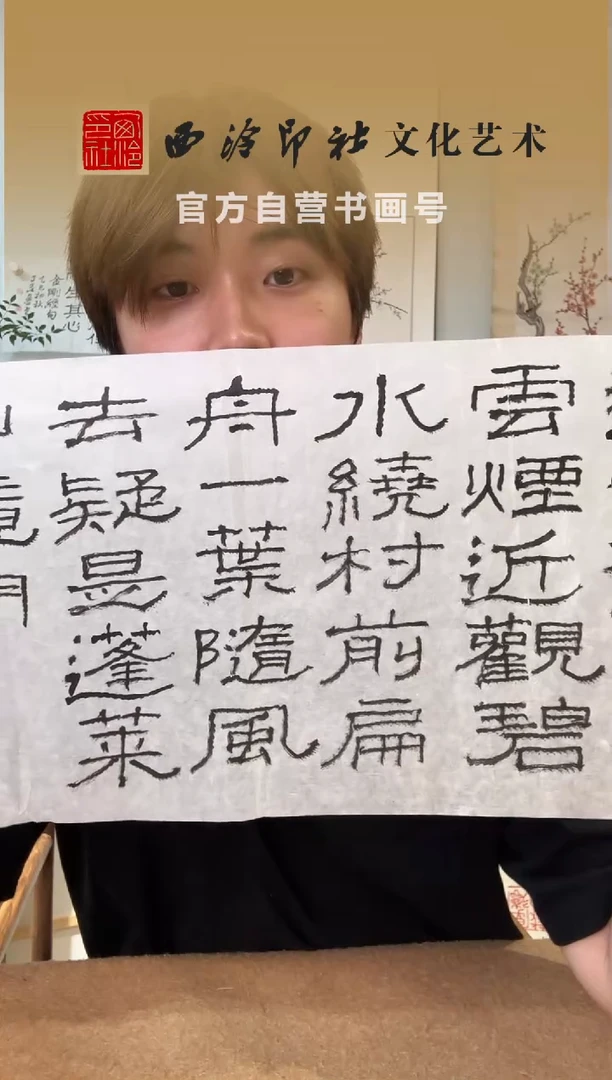 西泠印社
西泠印社文化艺术
官方自营书画号
雲煙近觀碧
水繞村前扁
舟一葉隨風
去疑是蓬萊
門